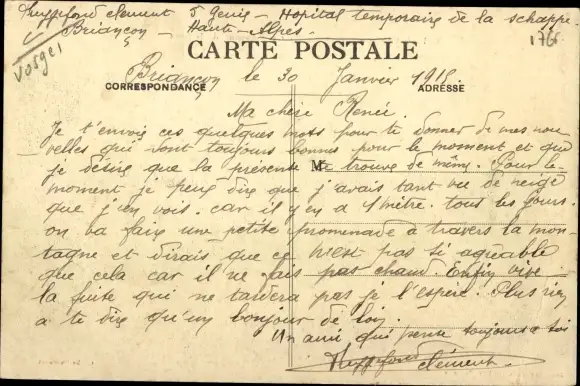 clément 5 Génie - Hopital temporaire de la schappe.
Briançon - Haute-Alpes -
Vosges
1765
CARTE POSTALE
Briançon le 30 Janvier 1915
CORRESPONDANCE ADRESSE
Ma chère Renée.
Je t'envoie ces quelques mots pour te donner de mes nou-
velles qui sont toujours bonnes pour le moment et que
je désire que la présente te trouve de même. Pour le
M
moment je peux dire que j'avais tant vu de neige
que j'en vois. car il y en a 1 mètre. tous les jours.
on va faire une petite promenade à travers la mon-
tagne et dirais que ce n'est pas si agréable
que cela car il ne fais pas chaud. Enfin vive
la fuite qui ne tardera pas je l'espère. Plus rien
a te dire qu'un bonjour de loin.
Un ami, qui pense toujours a toi
clément